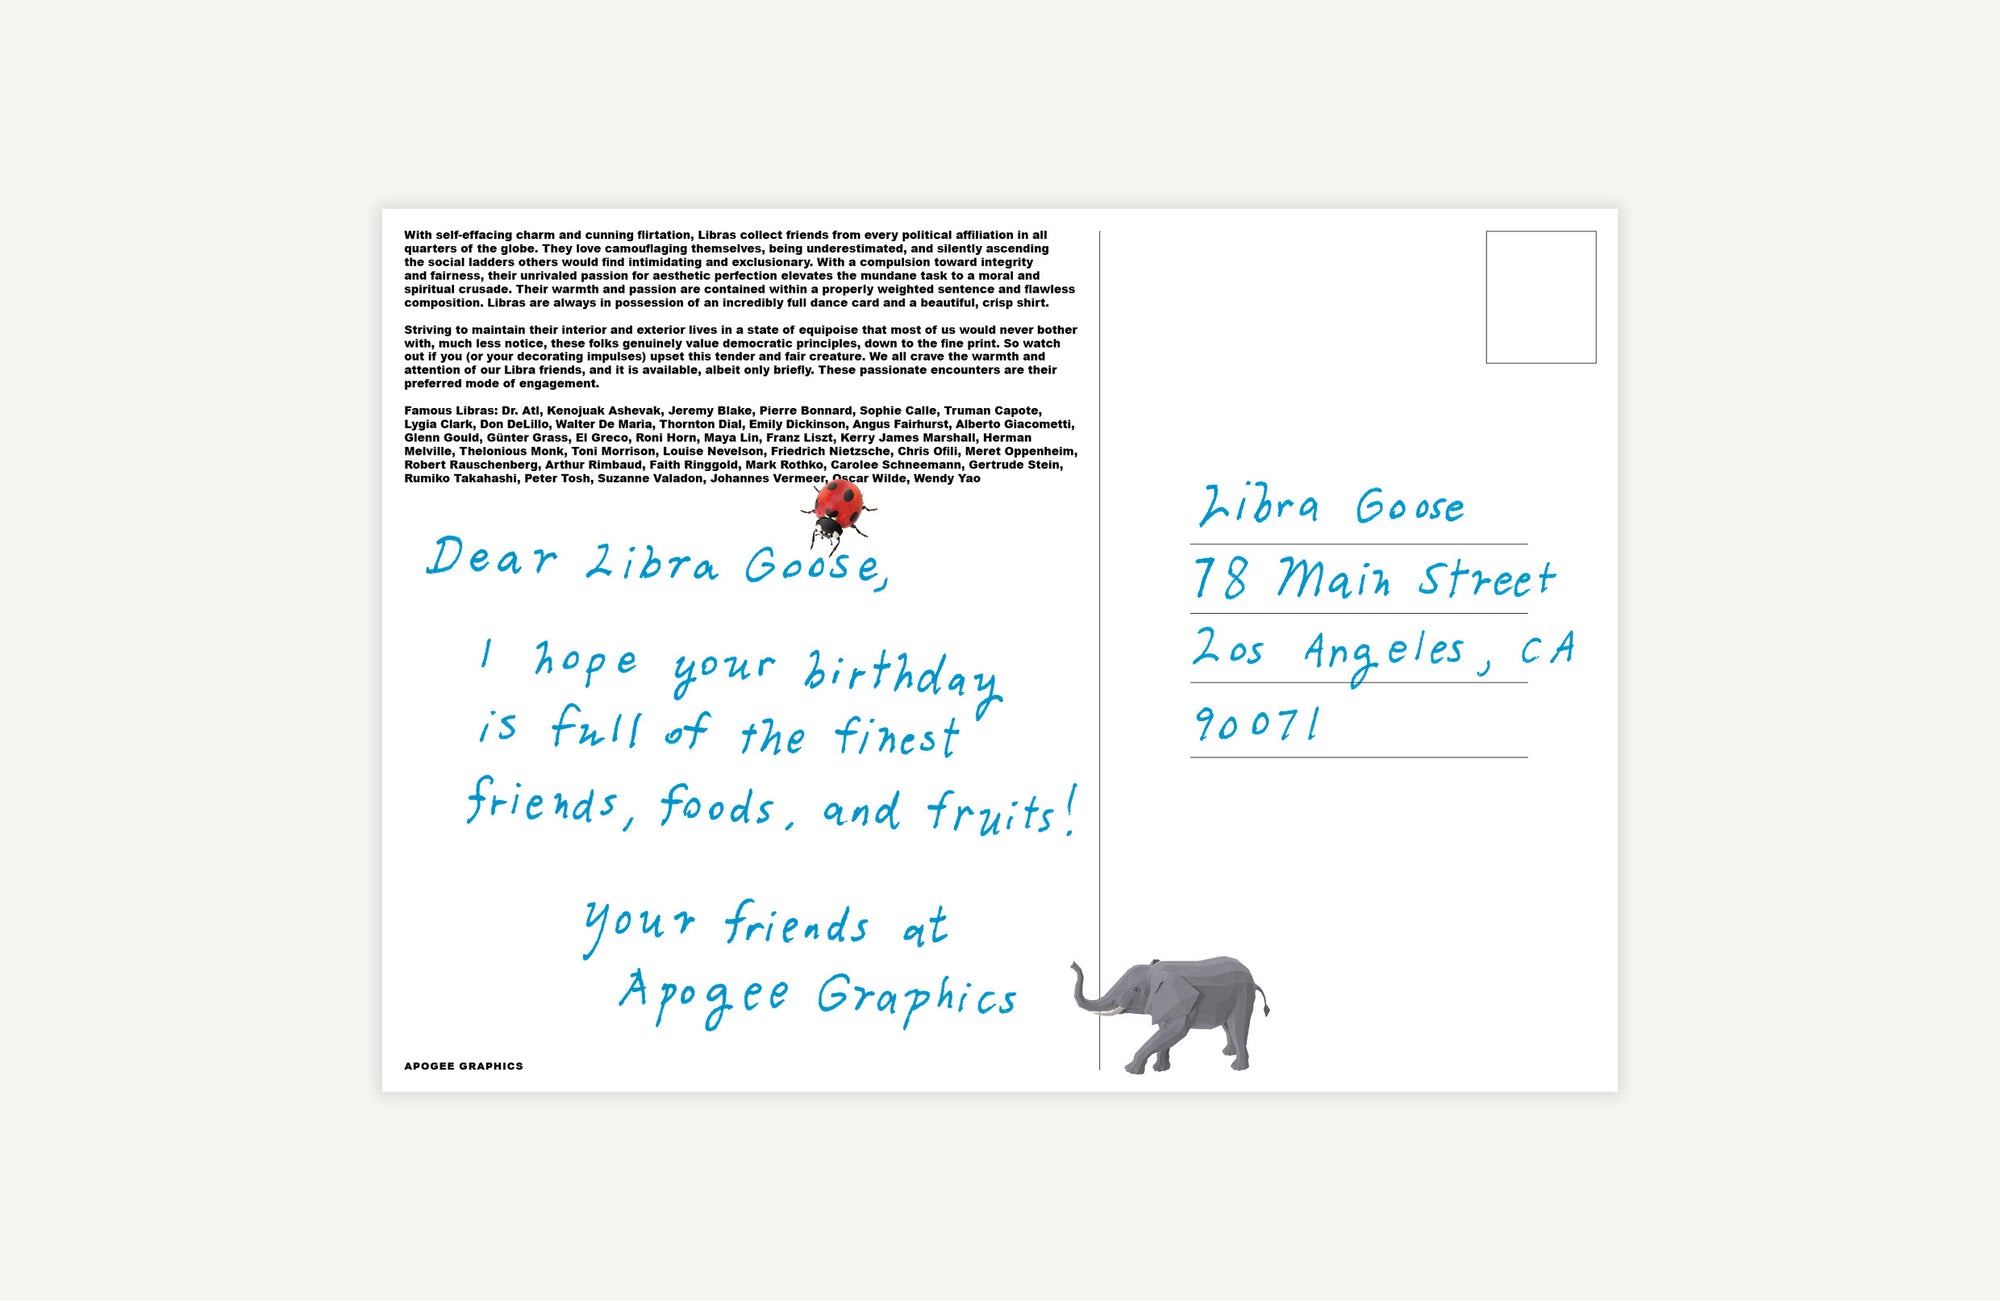 With self-effacing charm and cunning flirtation, Libras collect friends from every political affiliation in all
quarters of the globe. They love camouflaging themselves, being underestimated, and silently ascending
the social ladders others would find intimidating and exclusionary. With a compulsion toward integrity
and fairness, their unrivaled passion for aesthetic perfection elevates the mundane task to a moral and
spiritual crusade. Their warmth and passion are contained within a properly weighted sentence and flawless
composition. Libras are always in possession of an incredibly full dance card and a beautiful, crisp shirt.
Striving to maintain their interior and exterior lives in a state of equipoise that most of us would never bother
with, much less notice, these folks genuinely value democratic principles, down to the fine print. So watch
out if you (or your decorating impulses) upset this tender and fair creature. We all crave the warmth and
attention of our Libra friends, and it is available, albeit only briefly. These passionate encounters are their
preferred mode of engagement.
Famous Libras: Dr. Atl, Kenojuak Ashevak, Jeremy Blake, Pierre Bonnard, Sophie Calle, Truman Capote,
Lygia Clark, Don DeLillo, Walter De Maria, Thornton Dial, Emily Dickinson, Angus Fairhurst, Alberto Giacometti,
Glenn Gould, Günter Grass, El Greco, Roni Horn, Maya Lin, Franz Liszt, Kerry James Marshall, Herman
Melville, Thelonious Monk, Toni Morrison, Louise Nevelson, Friedrich Nietzsche, Chris Ofili, Meret Oppenheim,
Robert Rauschenberg, Arthur Rimbaud, Faith Ringgold, Mark Rothko, Carolee Schneemann, Gertrude Stein,
Rumiko Takahashi, Peter Tosh, Suzanne Valadon, Johannes Vermeer, Oscar Wilde, Wendy Yao
Dear Libra Goose,
I hope your birthday
is full of the finest
friends, foods, and fruits!
Your friends at
Apogee Graphics
APOGEE GRAPHICS
Libra Goose
78 Main Street
Los Angeles, CA
90071